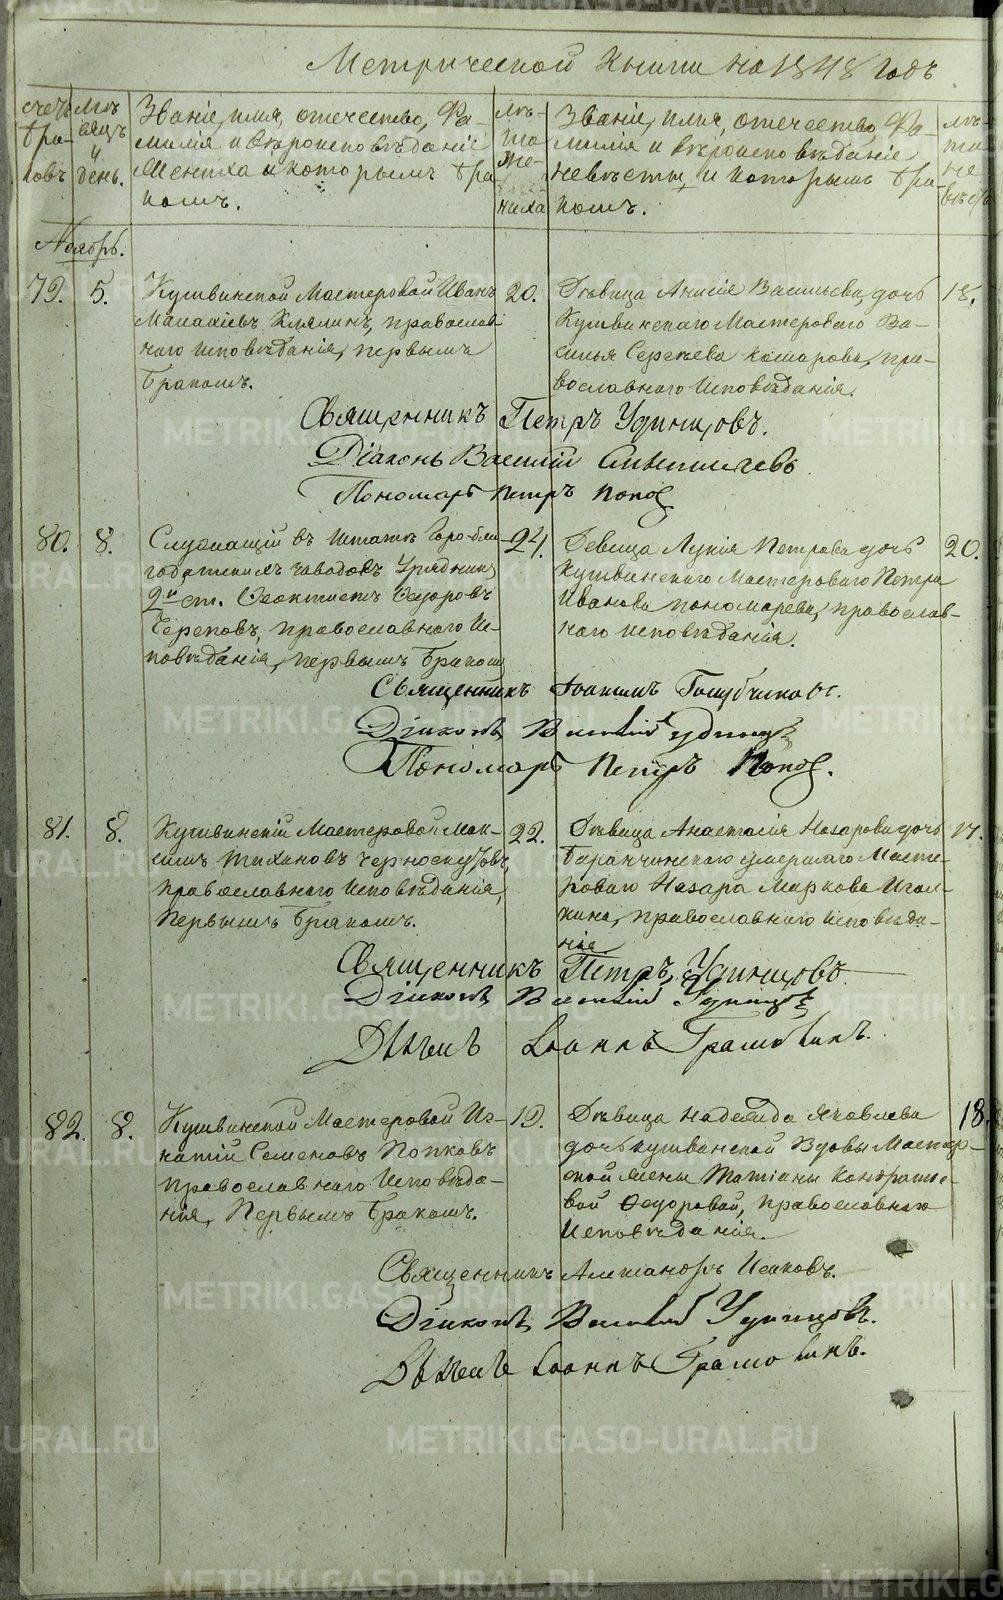 Метрической Книги на 1848 годъ
Счетъ браковъ
Мѣсяцъ и день.
Званіе, имя, отечество, Фамилія и вѣроисповѣданіе Жениха и которымъ бракомъ.
Лѣта жениха
Званіе, имя, отечество, Фамилія и вѣроисповѣданіе невѣсты, и которымъ бракомъ.
Лѣта невѣсты
Ноябрь.
79. 5. Кушвинской Мастеровой Иванъ
православ-
наго исповѣданія, первымъ
бракомъ.
20.
Дѣвица Анисія Васильева, дочь
Кушвинскаго Мастероваго Ва-
силья Сергеева пра-
вославнаго исповѣданія.
18.
Священникъ Петръ Удинцовъ.
Діаконъ Василій
Пономарь Петръ Попов
80. 8. Служащій въ штатѣ Горобла-
годатскихъ заводовъ Урядникъ
2й ст. Феоктистъ Федоровъ
Череповъ, православнаго Ис-
повѣданія, первымъ бракомъ
24.
Девица Лукія Петрова дочь
Кушвинскаго Мастероваго Петра
Иванова Пономарева, православ-
наго исповѣданія.
20.
Священникъ Іоакимъ
Діаконъ Василій Удинцовъ
Пономарь Петръ Попов.
81. 8. Кушвинскій Мастеровой Мак-
симъ Тихановъ Черноскутовъ,
православнаго исповѣданія,
первымъ бракомъ.
22.
Дѣвица Анастасія Назарова дочь
Баранчинскаго умершаго Масте-
роваго Назара Маркова Игол-
кина, православнаго исповѣда-
нія
17.
Священникъ Петръ Удинцовъ
Діаконъ Василій Удинцовъ
Дьячекъ Іоаннъ Грамолинъ.
82. 8. Кушвинской Мастеровой Иг-
натій Семеновъ Попковъ
православнаго исповѣда-
нія, первымъ бракомъ.
19.
Дѣвица Надежда Яковлева
дочь кушвинской Вдовы Мастер-
ской жены Татіаны Кондратье-
вой Федоровой, православнаго
исповѣданія.
18.
Священникъ Александръ Исаковъ.
Діаконъ Василій Удинцовъ.
Дьячекъ Іоаннъ Грамолинъ.
METRIKI.GASO-URAL.RU